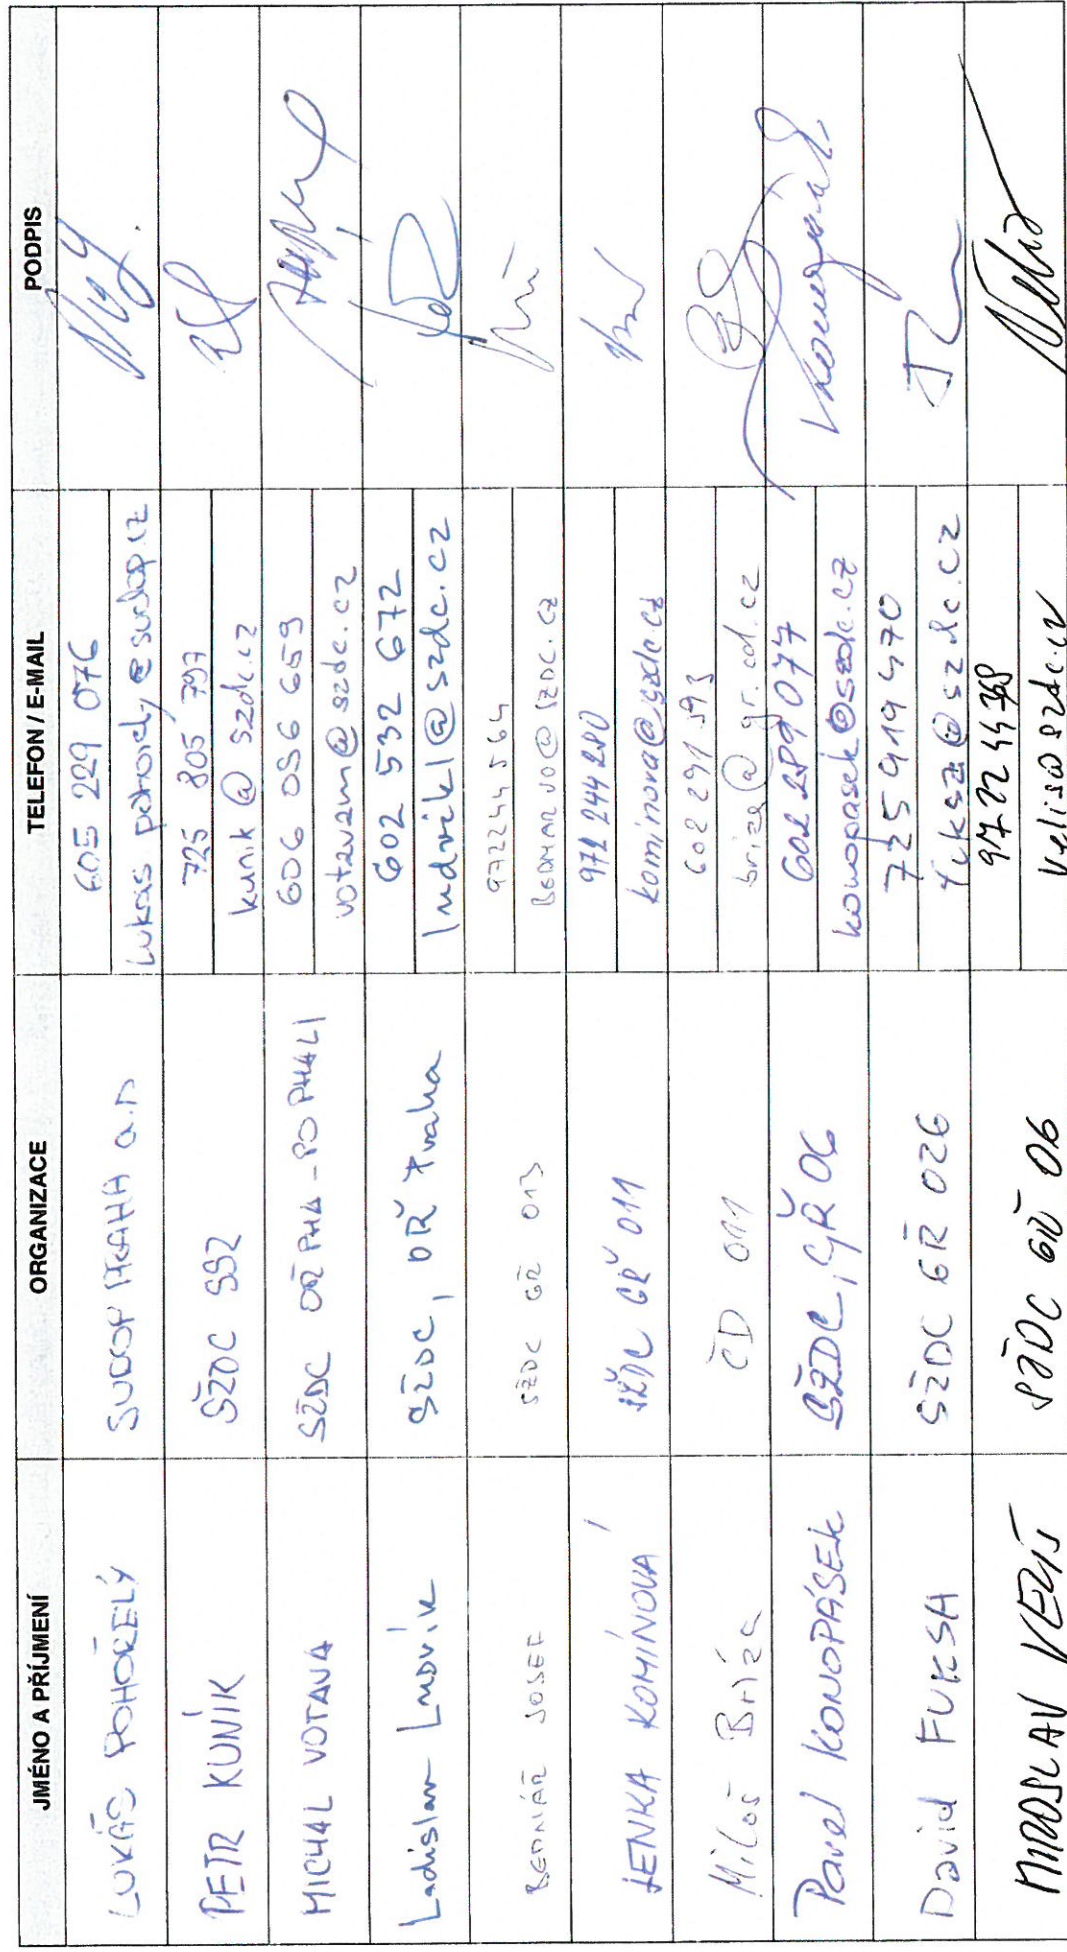 JMÉNO A PŘÍJMENÍ ORGANIZACE TELEFON / E-MAIL PODPIS
LUKÁŠ POHOŘELÝ SUDOP PRAHA a.s. 605 229 076
PETR KUNÍK SŽDC SSZ 725 805 797
kunik@szdc.cz
MICHAL VOTAVA SŽDC OŘ PHA - PO PHA LI 606 036 659
votavam@szdc.cz
Ladislav Ludvík SŽDC, OŘ Praha 602 532 672
ludvikl@szdc.cz
BEDNÁŘ JOSEF SŽDC GŘ 013 972244564
BEDNARJO@SZDC.CZ
LENKA KOMÍNOVÁ SŽDC GŘ 011 972 244 280
kominova@szdc.cz
Miloš Bříza ČD 011 602 291 593
briza@gr.cd.cz
Pavel KONOPÁSEK SŽDC, GŘ O6 602 289 077
konopasek@szdc.cz
David FUKSA SŽDC GŘ O26 725 919 470
fuksa@szdc.cz
MIROSLAV VELIŠ SŽDC GŘ 06 972244768
velis@szdc.cz